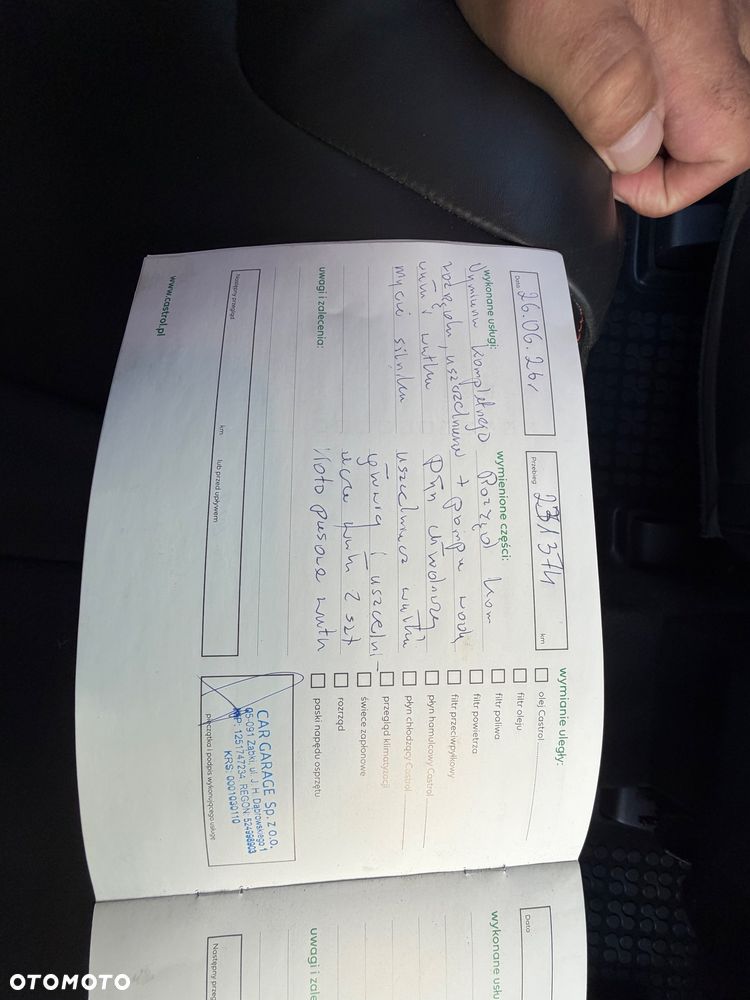 Data 26.06.26r
Przebieg 231374 km
wykonane usługi:
Wymiana kompletnego
rozrządu, uszczelnienie
wału i wałka
mycie silnika
wymienione części:
Rozrząd kom
+ pompa wody
płyn chłodniczy
uszczelniacz wałka
i uszczelni-
2 szt
uwagi i zalecenia:
Następny przegląd
km
lub przed upływem
wymianie uległy:
olej Castrol
filtr oleju
filtr paliwa
filtr powietrza
filtr przeciwpyłkowy
płyn hamulcowy Castrol
płyn chłodzący Castrol
przegląd klimatyzacji
świece zapłonowe
rozrząd
paski napędu osprzętu
CAR GARAGE Sp. z o.o.
05-091 Ząbki, ul. J. H. Dąbrowskiego 1
NIP: 1251747234, REGON: 524998903
KRS: 0001030110
pieczątka i podpis wykonującego usługę
www.castrol.pl
Data
wykonane usłu
uwagi i zale
Następny przeg
OTOMOTO